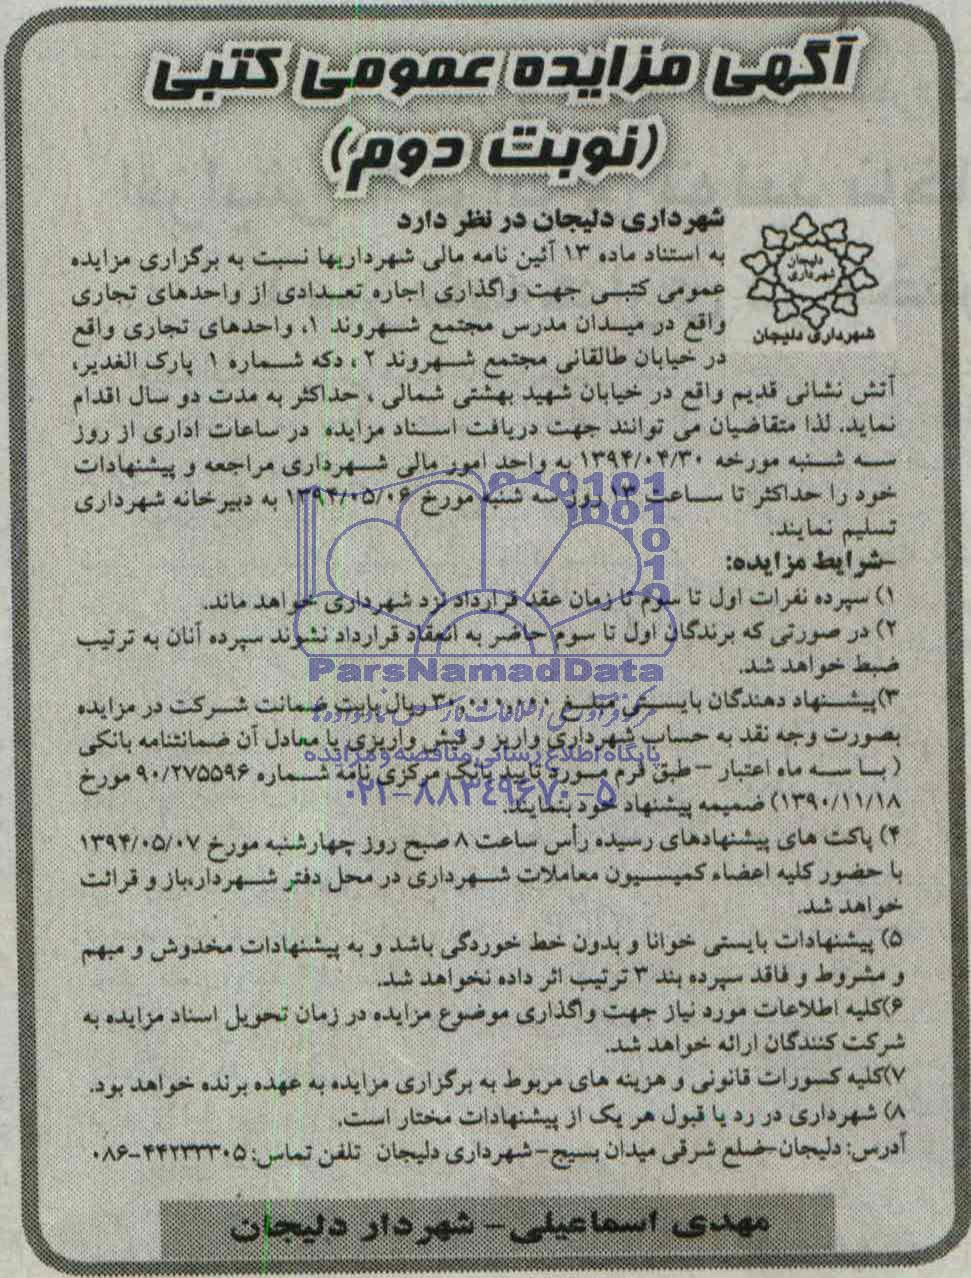 آگهی مزایده عمومی کتبی
(نوبت دوم)
شهرداری دلیجان در نظر دارد
دلیجان
شهرداری
شهرداری دلیجان
به استناد ماده ۱۳ آئین نامه مالی شهرداریها نسبت به برگزاری مزایده
عمومی کتبی جهت واگذاری اجاره تعدادی از واحدهای تجاری
واقع در میدان مدرس مجتمع شهروند ۱، واحدهای تجاری واقع
در خیابان طالقانی مجتمع شهروند ۲ ، دکه شماره ۱ پارک الغدیر،
آتش نشانی قدیم واقع در خیابان شهید بهشتی شمالی ، حداکثر به مدت دو سال اقدام
نماید. لذا متقاضیان می توانند جهت دریافت اسناد مزایده در ساعات اداری از روز
سه شنبه مورخه ۱۳۹۴/۰۴/۳۰ به واحد امور مالی شهرداری مراجعه و پیشنهادات
خود را حداکثر تا ساعت ۱۳ روز سه شنبه مورخ ۱۳۹۴/۰۵/۰۶ به دبیرخانه شهرداری
تسلیم نمایند.
-شرایط مزایده:
۱) سپرده نفرات اول تا سوم تا زمان عقد قرارداد نزد شهرداری خواهد ماند.
۲) در صورتی که برندگان اول تا سوم حاضر به انعقاد قرارداد نشوند سپرده آنان به ترتیب
ضبط خواهد شد.
ParsNamadData
۳)پیشنهاد دهندگان بایستی مبلغ ریال بابت ضمانت شرکت در مزایده
بصورت وجه نقد به حساب شهرداری واریز و فیش واریزی یا معادل آن ضمانتنامه بانکی
پایگاه اطلاع رسانی مناقصه و مزایده
( با سه ماه اعتبار – طبق فرم مورد تایید بانک مرکزی نامه شماره ۹۰/۲۷۵۵۹۶ مورخ
۱۳۹۰/۱۱/۱۸) ضمیمه پیشنهاد خود بنمایند.
۰۲۱-۸۸۳۴۹۶۷۰-۵
۴) پاکت های پیشنهادهای رسیده رأس ساعت ۸ صبح روز چهارشنبه مورخ ۱۳۹۴/۰۵/۰۷
با حضور کلیه اعضاء کمیسیون معاملات شهرداری در محل دفتر شهردار،باز و قرائت
خواهد شد.
۵) پیشنهادات بایستی خوانا و بدون خط خوردگی باشد و به پیشنهادات مخدوش و مبهم
و مشروط و فاقد سپرده بند ۳ ترتیب اثر داده نخواهد شد.
۶)کلیه اطلاعات مورد نیاز جهت واگذاری موضوع مزایده در زمان تحویل اسناد مزایده به
شرکت کنندگان ارائه خواهد شد.
۷)کلیه کسورات قانونی و هزینه های مربوط به برگزاری مزایده به عهده برنده خواهد بود.
۸) شهرداری در رد یا قبول هر یک از پیشنهادات مختار است.
آدرس: دلیجان-ضلع شرقی میدان بسیج-شهرداری دلیجان تلفن تماس: ۴۴۲۳۳۳۰۵-۰۸۶
مهدی اسماعیلی- شهردار دلیجان